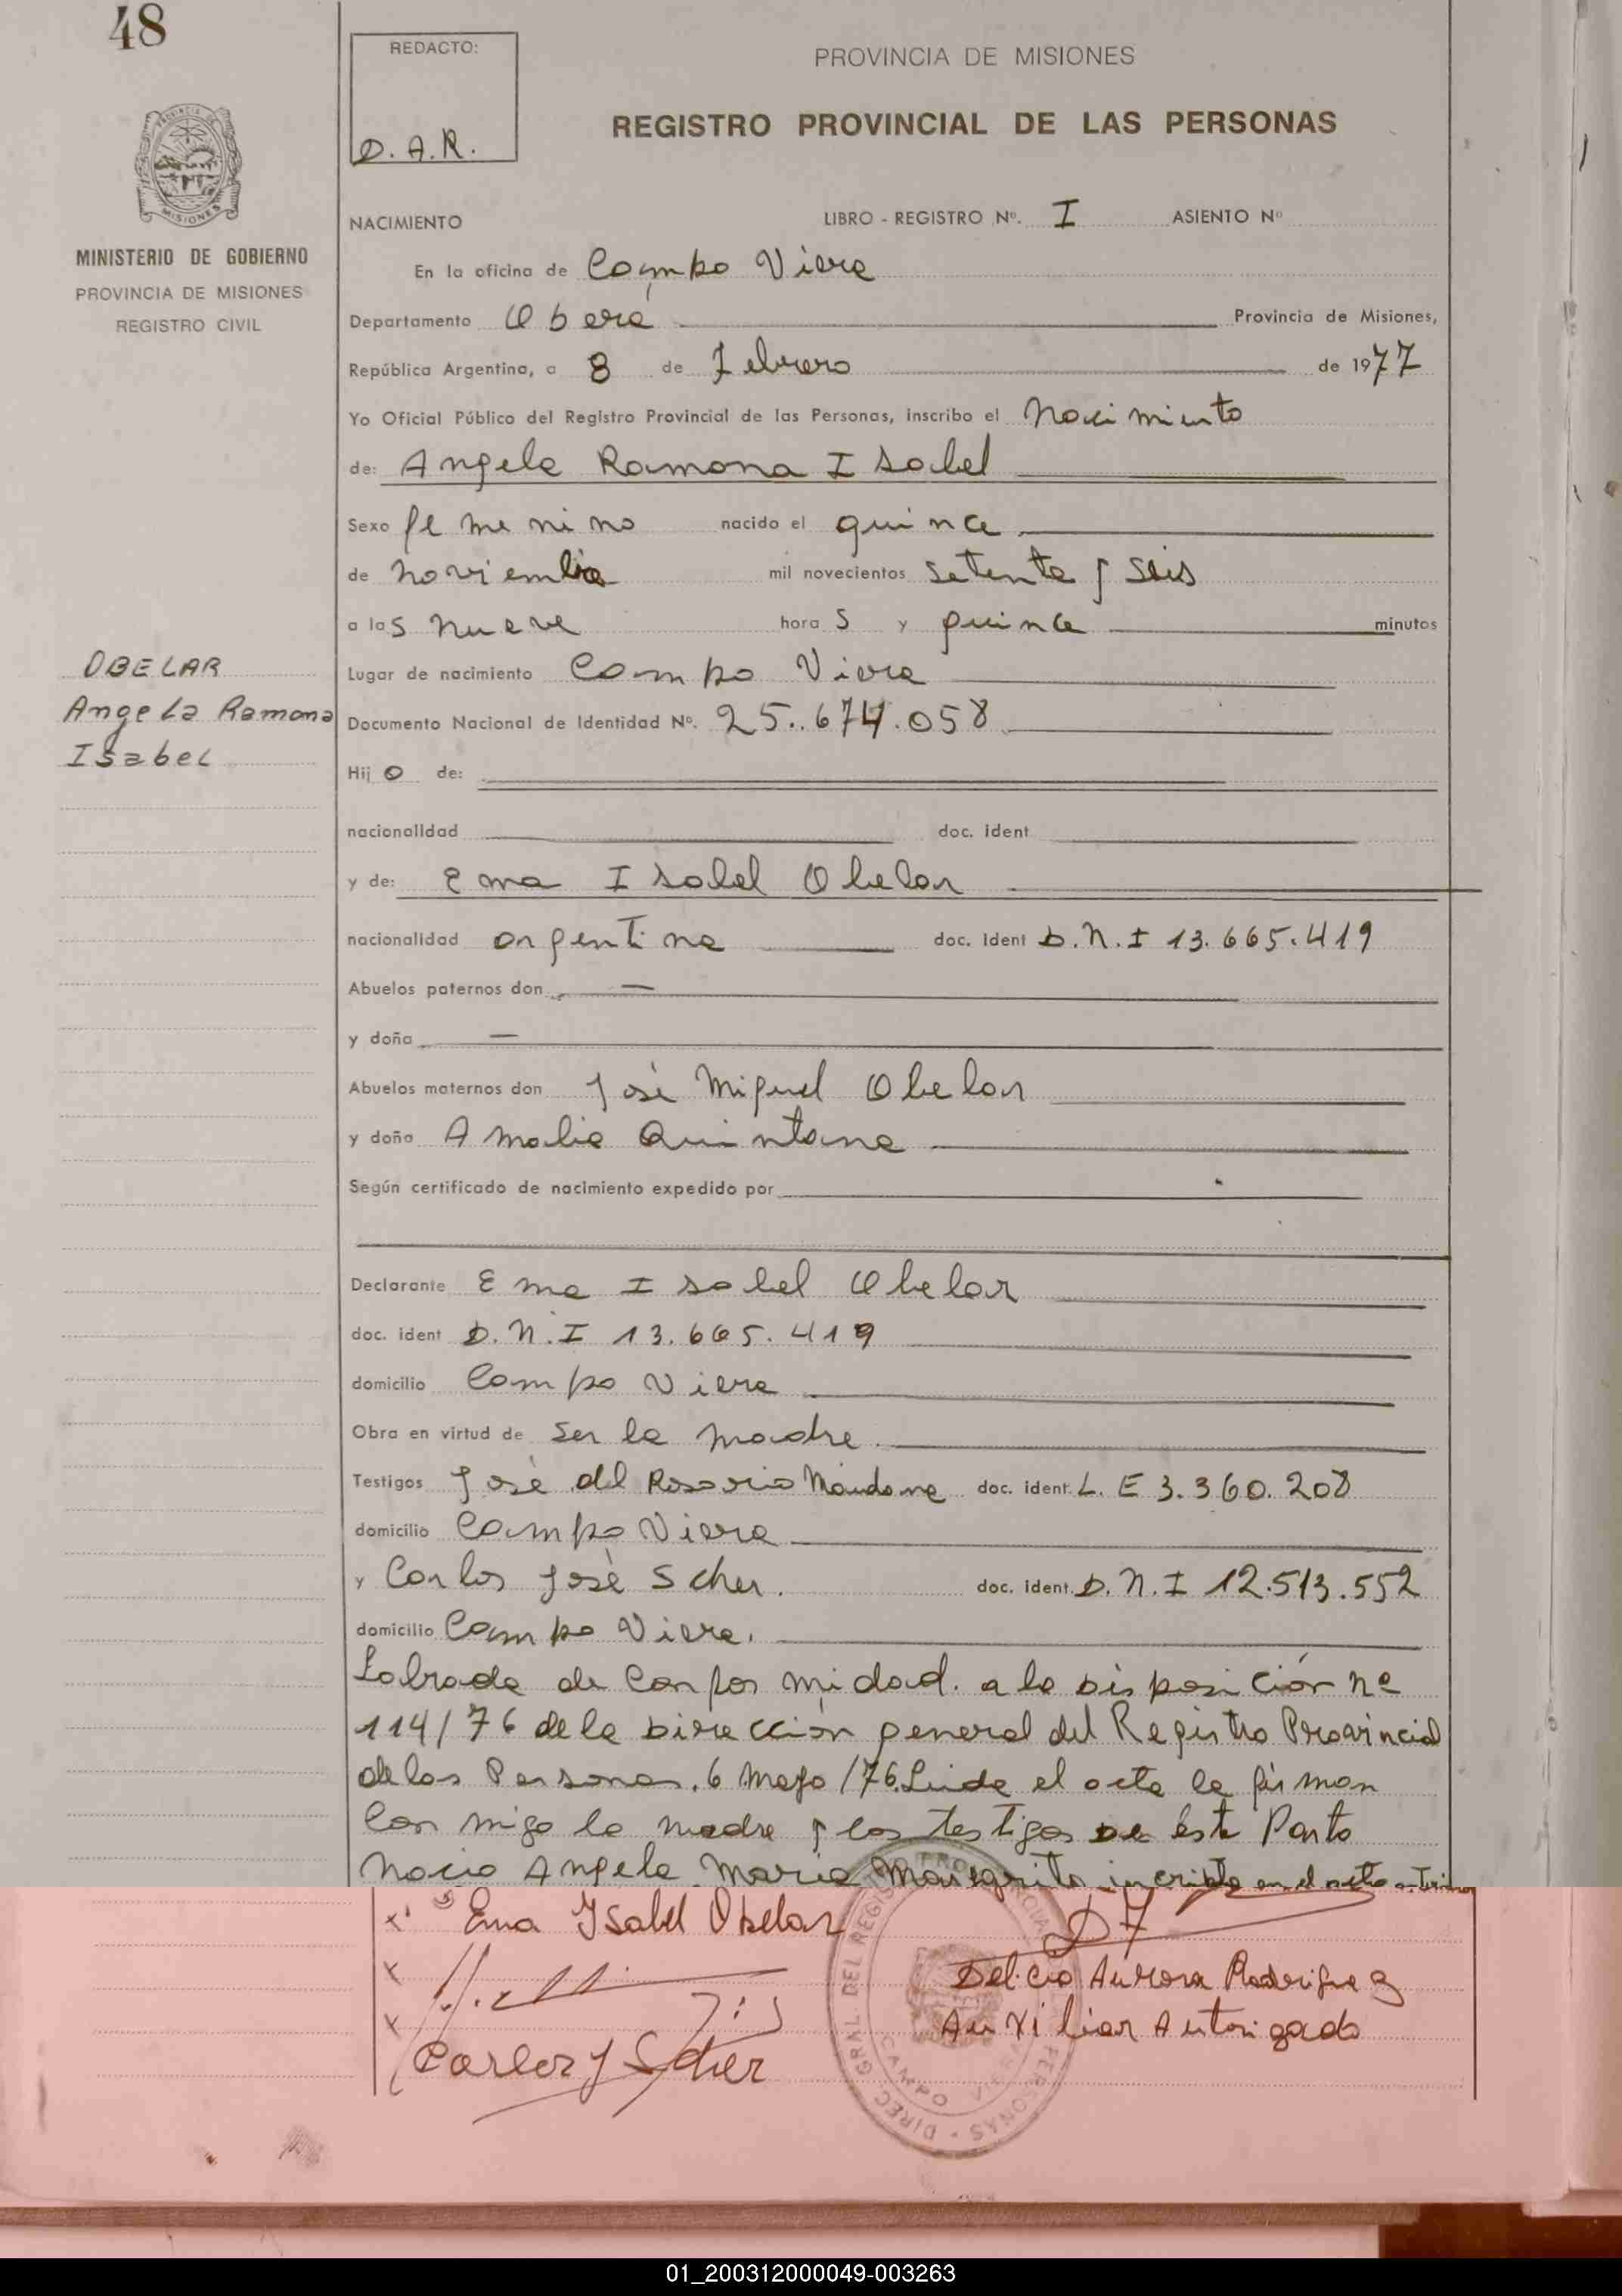 48
REDACTO:
D.A.R.
PROVINCIA DE MISIONES
REGISTRO PROVINCIAL DE LAS PERSONAS
MISIONES
MINISTERIO DE GOBIERNO
PROVINCIA DE MISIONES
REGISTRO CIVIL
NACIMIENTO LIBRO - REGISTRO Nº. I ASIENTO Nº
En la oficina de Campo Viera
Departamento Oberá Provincia de Misiones,
República Argentina, a 8 de Febrero de 1977
Yo Oficial Público del Registro Provincial de las Personas, inscribo el Nacimiento
de: Angela Ramona Isabel
Sexo femenino nacido el quince
de noviembre mil novecientos setenta y seis
a las nueve horas y quince minutos
OBELAR
Angela Ramona
Isabel
Lugar de nacimiento Campo Viera
Documento Nacional de Identidad Nº. 25.674.058
Hijo de:
nacionalidad doc. ident
y de: Ema Isabel Obelar
nacionalidad argentina doc. ident D.N.I 13.665.419
Abuelos paternos don —
y doña —
Abuelos maternos don José Miguel Obelar
y doña Amalia Quintana
Según certificado de nacimiento expedido por
Declarante Ema Isabel Obelar
doc. ident D.N.I 13.665.419
domicilio Campo Viera
Obra en virtud de ser la madre.
Testigos José del Rosario doc. ident. L.E 3.360.208
domicilio Campo Viera
y Carlos José Scher. doc. ident. D.N.I 12.513.552
domicilio Campo Viera.
Labrada de conformidad. a la Disposición nº
114/76 de la Dirección general del Registro Provincial
de las Personas. 6 Mayo/76. Leida el acta la firman
conmigo la madre y los testigos De este Parto
Nacio Angela Maria Margarita en el acta anterior
Ema Ysabel Obelar
Delcia Aurora Rodriguez
Auxiliar Autorizado
Carlos J Scher
DIREC GRAL DEL REGISTRO PERSONAS - CAMPO VIERA
01_200312000049-003263